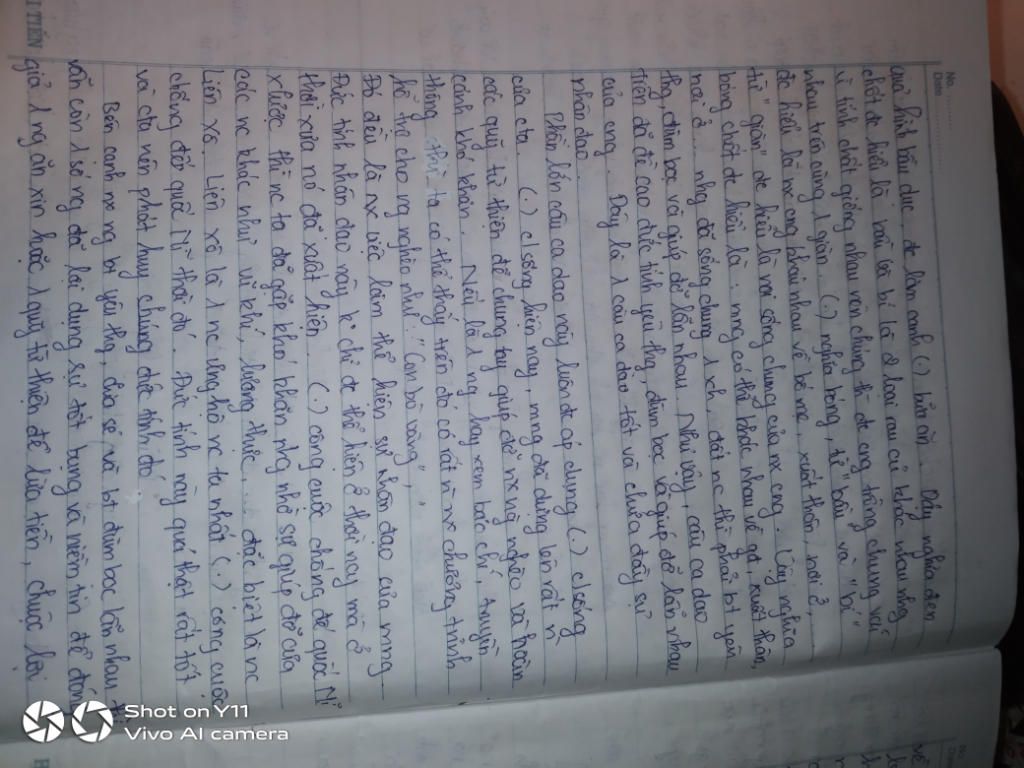 No. ............
Date ............
quả hình bầu dục, đc làm canh (.) bữa ăn. Dẫu nghĩa đen
chốt để hiểu là bầu bà bí là 2 loại rau củ khác nhau nhg
vì tính chất giống nhau nên chúng thì đc ông trồng chung với
nhau trên cùng 1 giàn. (.) nghĩa bóng, từ "bầu và "bí"
để hiểu là nx con phải nhau về bề mẽ, xuất thân, nơi ở,
từ "giàn" để hiểu là nơi sống chung của nx cng. Cùng nghĩa
bóng chốt để hiểu là: mng có thể khác nhau về gđ, xuất thân,
nơi ở... nhg đã sống chung 1 xh, đất nc thì phải bt yêu
thg, đùm bọc và giúp đỡ lẫn nhau. Như vậy, câu ca dao
trên đã đề cao đức tính yêu thg, đùm bọc và giúp đỡ lẫn nhau
của cng. Đây là 1 câu ca dao tốt và chứa đầy sự
nhân đạo.
Phần lớn câu ca dao này luôn đc áp dụng (.) c/sống
của cta. (.) c/sống hiện nay, mng đã dựng lên rất n`
các quỹ từ thiện để chung tay giúp đỡ nx ng nghèo và hoàn
cảnh khó khăn. Nếu là 1 ng hay xem báo chí, truyền
thông thì ta có thể thấy trên đó có rất n` nx chương trình
hỗ trợ cho ng nghèo như: "Con bò vàng",
Đó đều là nx việc làm thể hiện sự nhân đạo của mng
Đức tính nhân đạo này k chỉ đc thể hiện ở thời nay mà ở
thời xưa nó đã xuất hiện. (.) công cuộc chống đế quốc Mĩ
x/lược thì nc ta đã gặp khó khăn nhg nhờ sự giúp đỡ của
các nc khác như: vũ khí, lương thực,... đặc biệt là nc
Liên xô. Liên xô là 1 nc ủng hộ nc ta nhất (.) công cuộc
chống đế quốc Mĩ thời đó. Đức tính này quả thật rất tốt
và cta nên phát huy chúng đức tính đó.
Bên cạnh nx ng bt yêu thg, chia sẻ và bt đùm bọc lẫn nhau thì
vẫn còn 1 số ng đã lợi dụng sự tốt bụng và niềm tin để đóng
giả 1 ng ăn xin hoặc 1 quỹ từ thiện để lừa tiền, chuộc lợi
TIẾN
Shot on Y11
Vivo AI camera